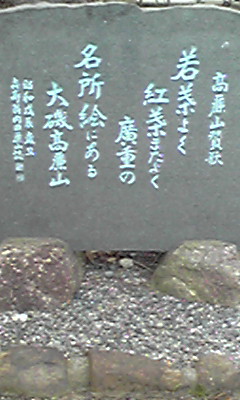 高麗山賛歌
若葉よく
紅葉またよく
廣重の
名所絵にある
大磯高麗山